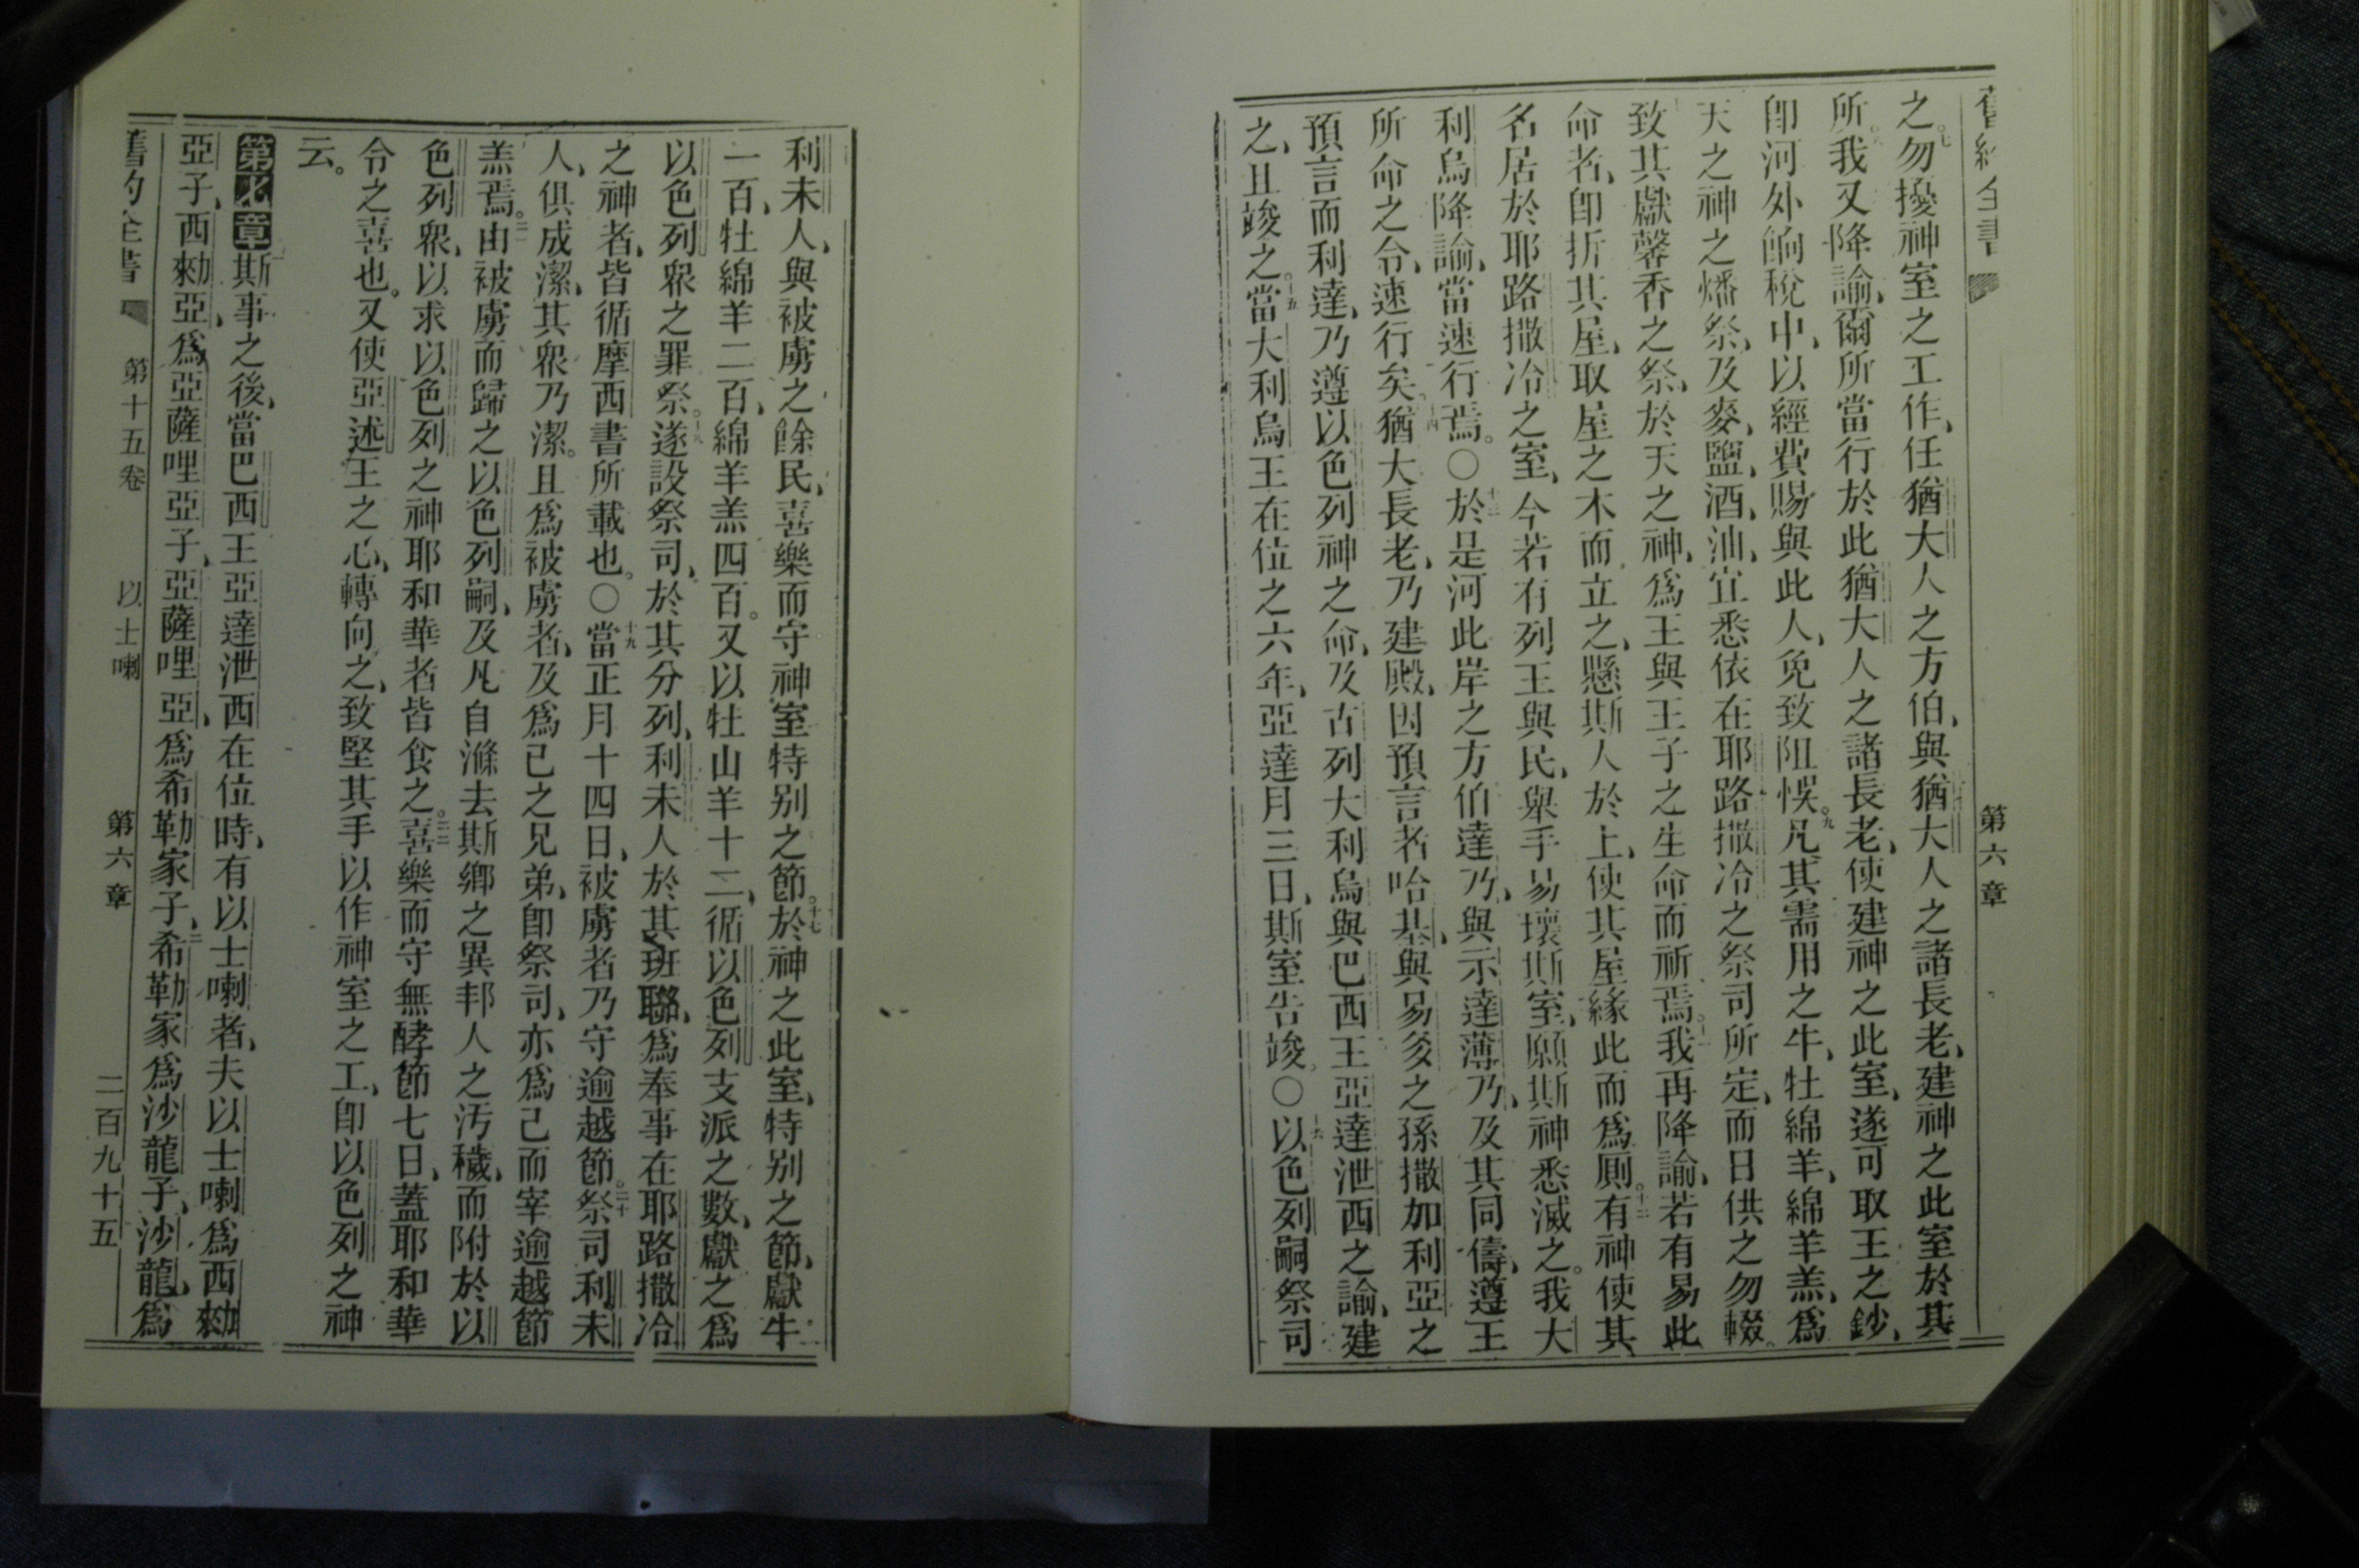 舊約全書
第六章
之。七勿擾神室之工作、任猶大人之方伯、與猶大人之諸長老、建神之此室於其
所。八我又降諭、爾所當行於此猶大人之諸長老、使建神之此室、遂可取王之鈔、
卽河外餉稅中、以經費賜與此人、免致阻悞。九凡其需用之牛、牡綿羊、綿羊羔、爲
天之神之燔祭、及麥、鹽、酒、油、宜悉依在耶路撒冷之祭司所定、而日供之勿輟。
致其獻馨香之祭、於天之神、爲王與王子之生命而祈焉。十一我再降諭、若有易此
命者、卽折其屋、取屋之木而立之、懸斯人於上、使其屋緣此而爲厠。十二有神使其
名居於耶路撒冷之室、今若有列王與民、舉手易壞斯室、願斯神悉滅之。我大
利烏降諭、當速行焉。〇十三於是河此岸之方伯達乃、與示達薄乃、及其同儔、遵王
所命之令、速行矣。十四猶大長老、乃建殿、因預言者哈基、與易多之孫撒加利亞之
預言而利達、乃遵以色列神之命、及古列大利烏與巴西王亞達泄西之諭、建
之、且竣之。十五當大利烏王在位之六年、亞達月三日、斯室告竣。〇十六以色列嗣祭司
利未人、與被虜之餘民、喜樂而守神室特别之節。十七於神之此室、特别之節、獻牛
一百、牡綿羊二百、綿羊羔四百。又以牡山羊十二、循以色列支派之數、獻之爲
以色列衆之罪祭。十八遂設祭司、於其分列、利未人於其班聯、爲奉事在耶路撒冷
之神者、皆循摩西書所載也。〇十九當正月十四日、被虜者乃守逾越節。二十祭司利未
人、俱成潔、其衆乃潔。且爲被虜者、及爲己之兄弟、卽祭司、亦爲己而宰逾越節
羔焉。二一由被虜而歸之以色列嗣、及凡自滌去斯鄉之異邦人之汚穢、而附於以
色列衆、以求以色列之神耶和華者皆食之。二二喜樂而守無酵節七日、蓋耶和華
令之喜也。又使亞述王之心、轉向之、致堅其手以作神室之工、卽以色列之神
云。
第七章斯事之後、當巴西王亞達泄西在位時、有以士喇者、夫以士喇爲西勑
亞子、西勑亞、爲亞薩哩亞子、亞薩哩亞、爲希勒家子、二希勒家爲沙龍子、沙龍、爲
舊約全書
第十五卷
以士喇
第六章
二百九十五